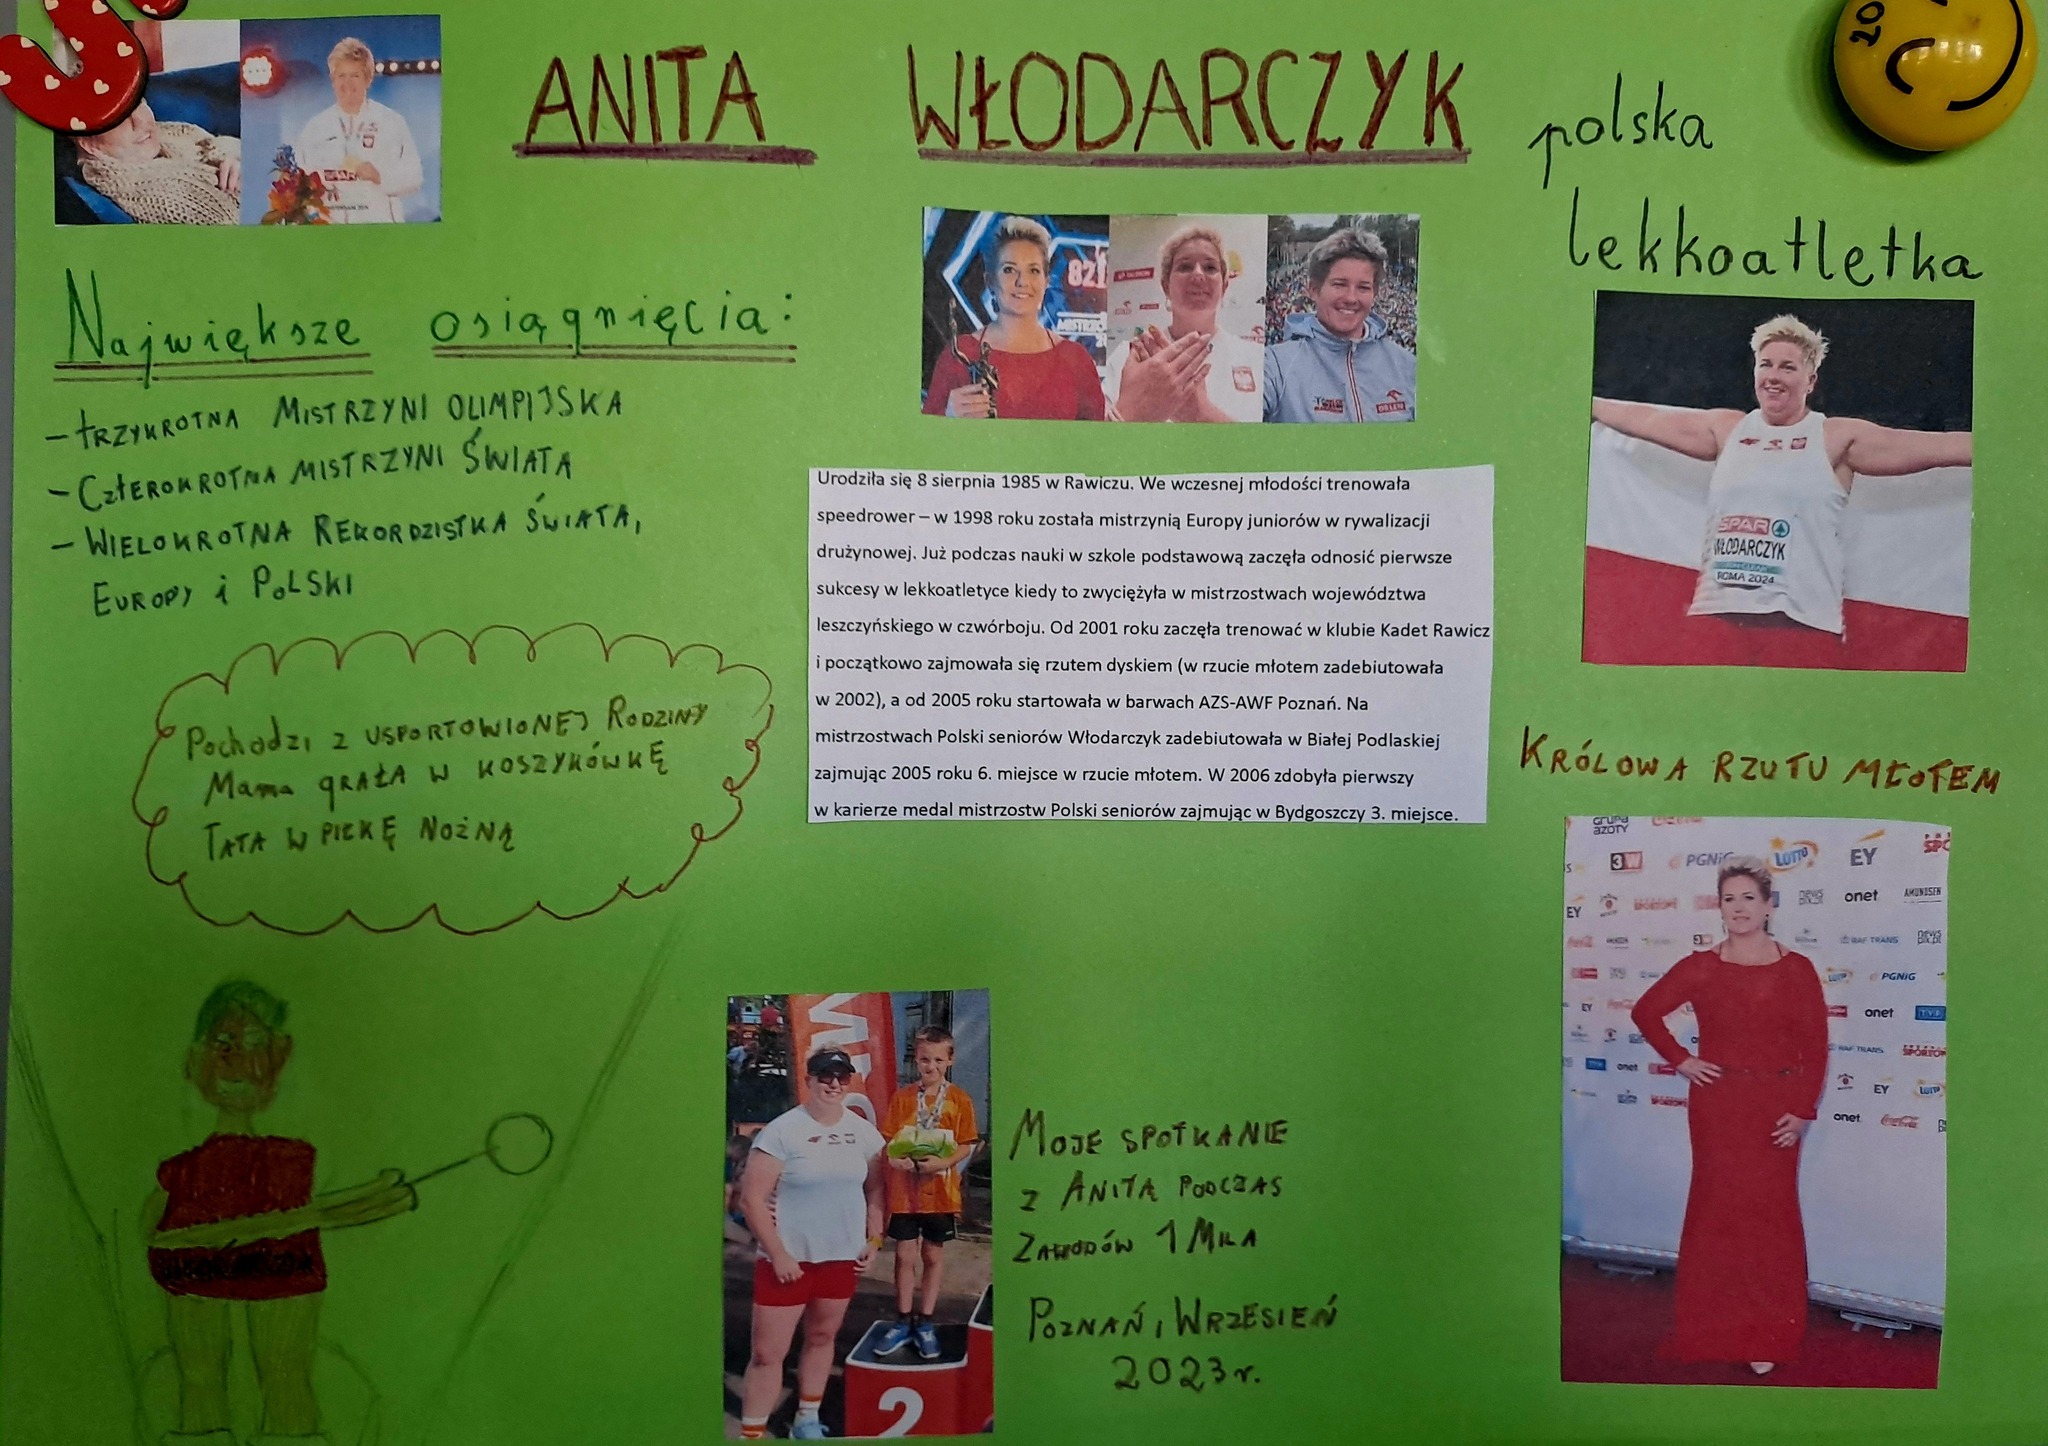 ANITA WŁODARCZYK
polska
lekkoatletka
Największe osiągnięcia:
- TRZYKROTNA MISTRZYNI OLIMPIJSKA
- CZTEROKROTNA MISTRZYNI ŚWIATA
- WIELOKROTNA REKORDZISTKA ŚWIATA,
EUROPY i POLSKI
Pochodzi z USPORTOWIONEJ RODZINY
Mama GRAŁA W KOSZYKÓWKĘ
TATA W PIŁKĘ NOŻNĄ
Urodziła się 8 sierpnia 1985 w Rawiczu. We wczesnej młodości trenowała
speedrower – w 1998 roku została mistrzynią Europy juniorów w rywalizacji
drużynowej. Już podczas nauki w szkole podstawową zaczęła odnosić pierwsze
sukcesy w lekkoatletyce kiedy to zwyciężyła w mistrzostwach województwa
leszczyńskiego w czwórboju. Od 2001 roku zaczęła trenować w klubie Kadet Rawicz
i początkowo zajmowała się rzutem dyskiem (w rzucie młotem zadebiutowała
w 2002), a od 2005 roku startowała w barwach AZS-AWF Poznań. Na
mistrzostwach Polski seniorów Włodarczyk zadebiutowała w Białej Podlaskiej
zajmując 2005 roku 6. miejsce w rzucie młotem. W 2006 zdobyła pierwszy
w karierze medal mistrzostw Polski seniorów zajmując w Bydgoszczy 3. miejsce.
SPAR
WŁODARCZYK
ROMA 2024
KRÓLOWA RZUTU MŁOTEM
GRUPA AZOTY
3W PGNiG LOTTO EY
onet AMUNDSEN
EY
3W RAF TRANS
LOTTO PGNiG
EY onet TVP
RAF TRANS
onet
EY LOTTO
onet Coca-Cola
MOJE SPOTKANIE
Z ANITĄ PODCZAS
ZAWODÓW 1 MILA
POZNAŃ, WRZESIEŃ
2023r.
2